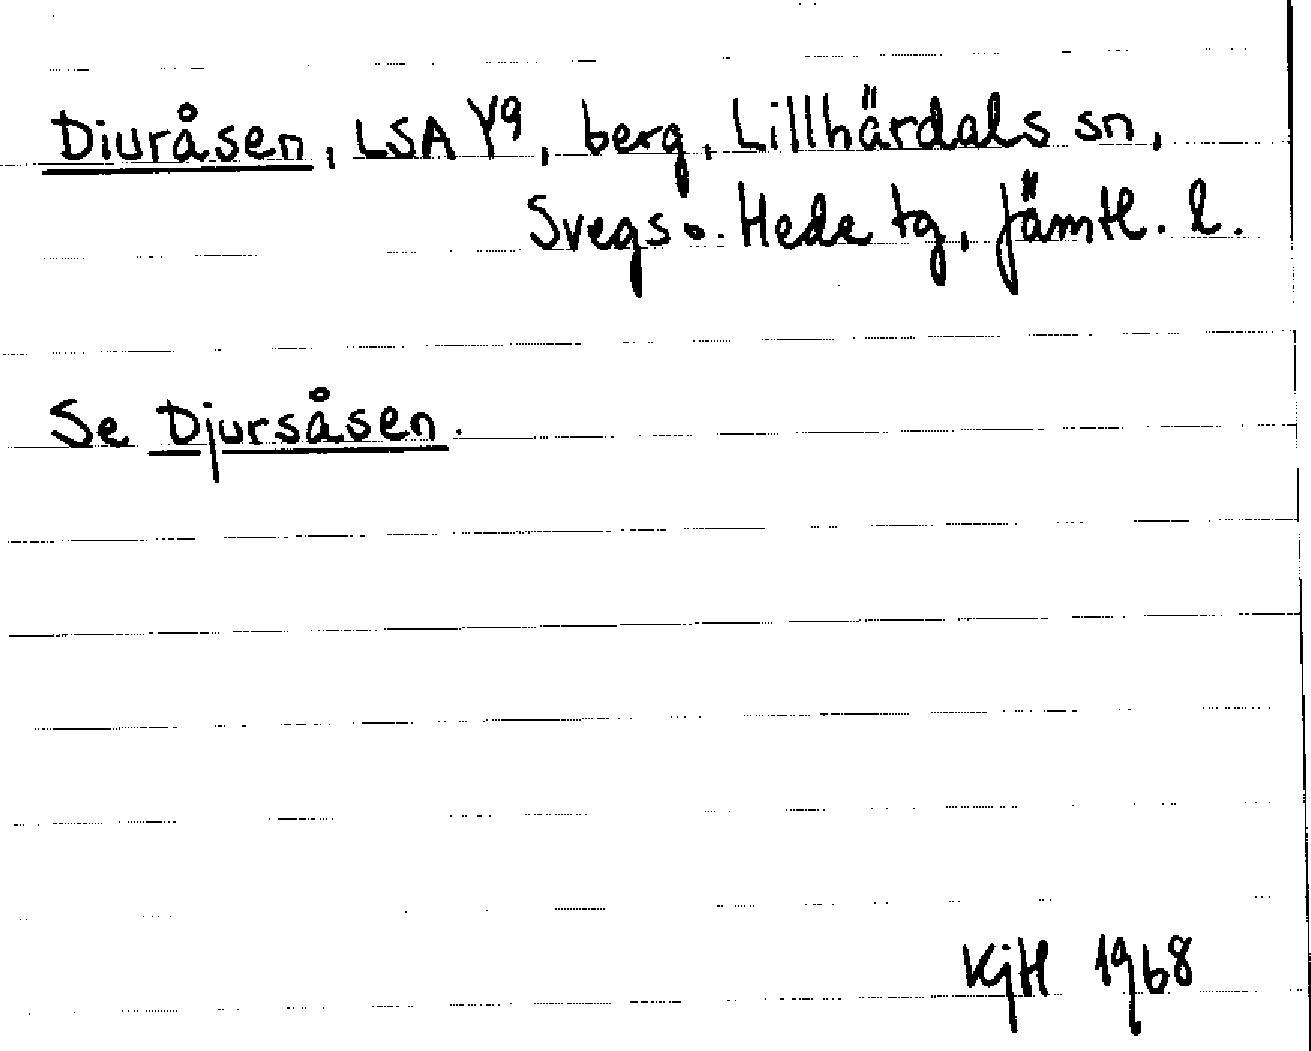 Diuråsen, LSA Y9, berg, Lillhärdals sn,
Svegs o. Hede tg, Jämtl. l.
Se Djursåsen.
KjH 1968